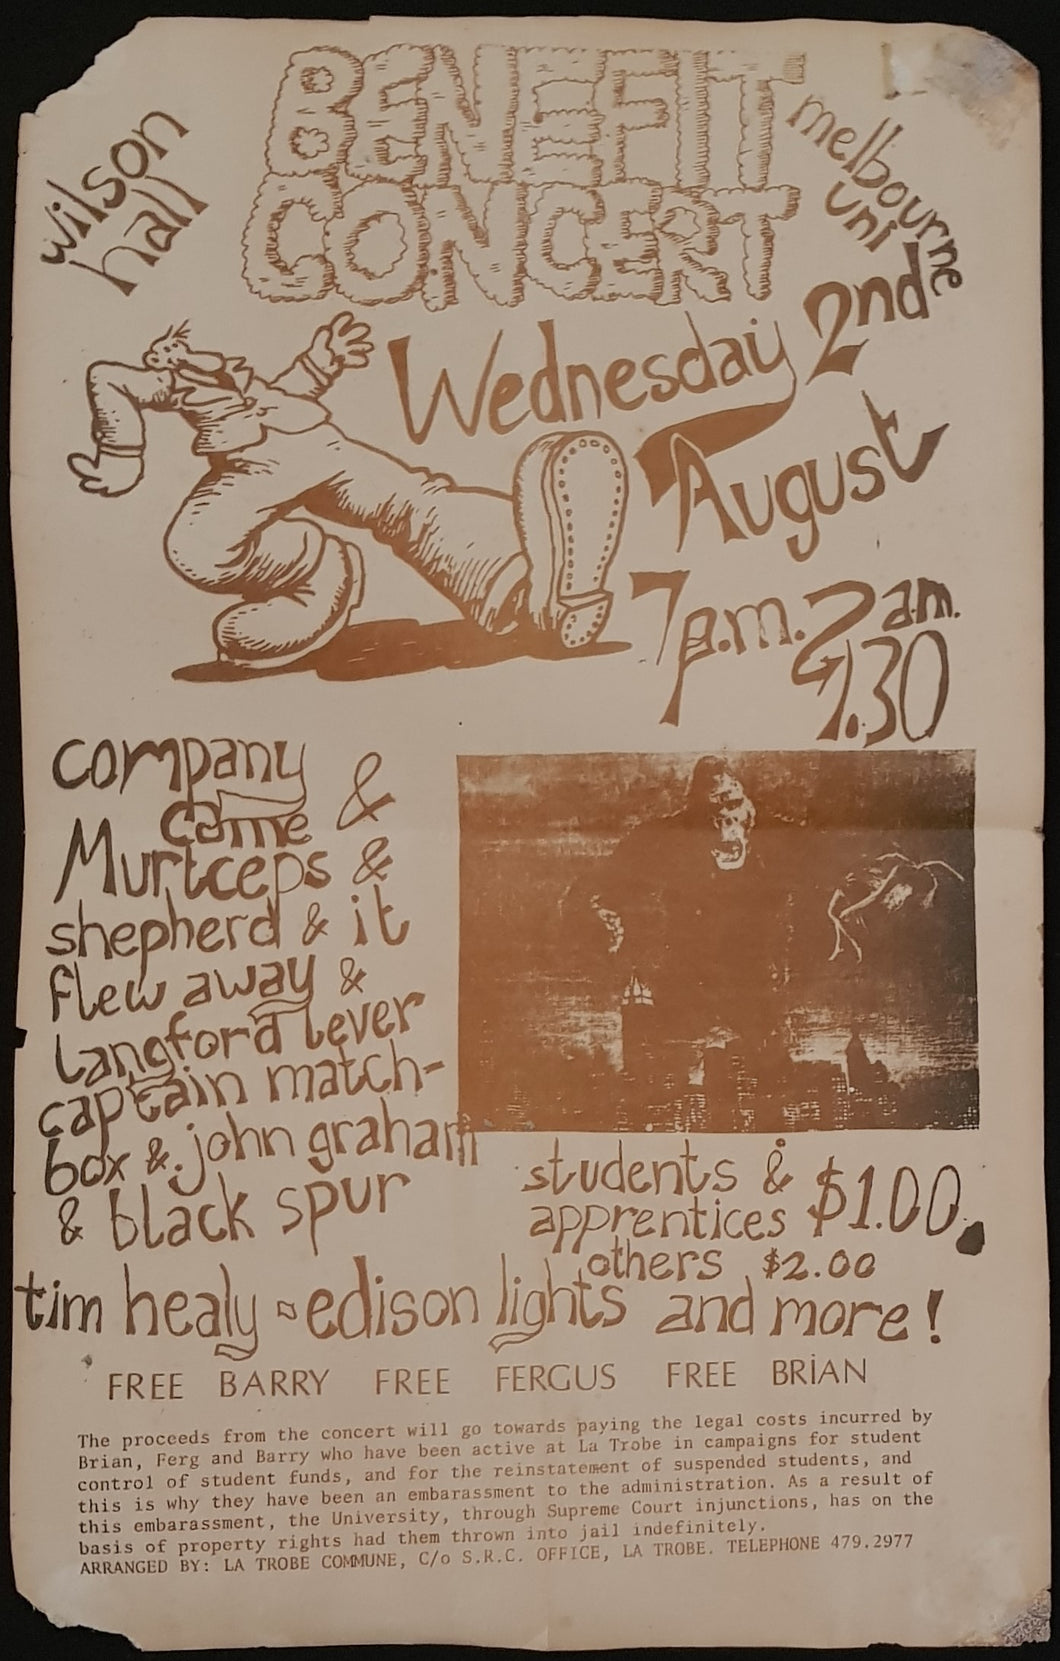 BENEFIT
CONCERT
wilson
hall
melbourne
uni
Wednesday 2nd
August
7p.m.
am.
company
came &
Murtceps &
shepherd & it
flew away &
langford lever
captain match-
box & john graham
& black spur
students &
apprentices $1.00
others $2.00
tim healy edison lights and more!
FREE BARRY FREE FERGUS FREE BRIAN
The proceeds from the concert will go towards paying the legal costs incurred by
Brian, Ferg and Barry who have been active at La Trobe in campaigns for student
control of student funds, and for the reinstatement of suspended students, and
this is why they have been an embarassment to the administration. As a result of
this embarassment, the University, through Supreme Court injunctions, has on the
basis of property rights had them thrown into jail indefinitely.
ARRANGED BY: LA TROBE COMMUNE, C/o S.R.C. OFFICE, LA TROBE. TELEPHONE 479.2977